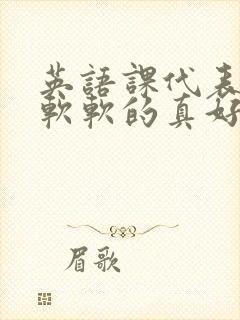 英語課代表
軟軟的真好
眉歌